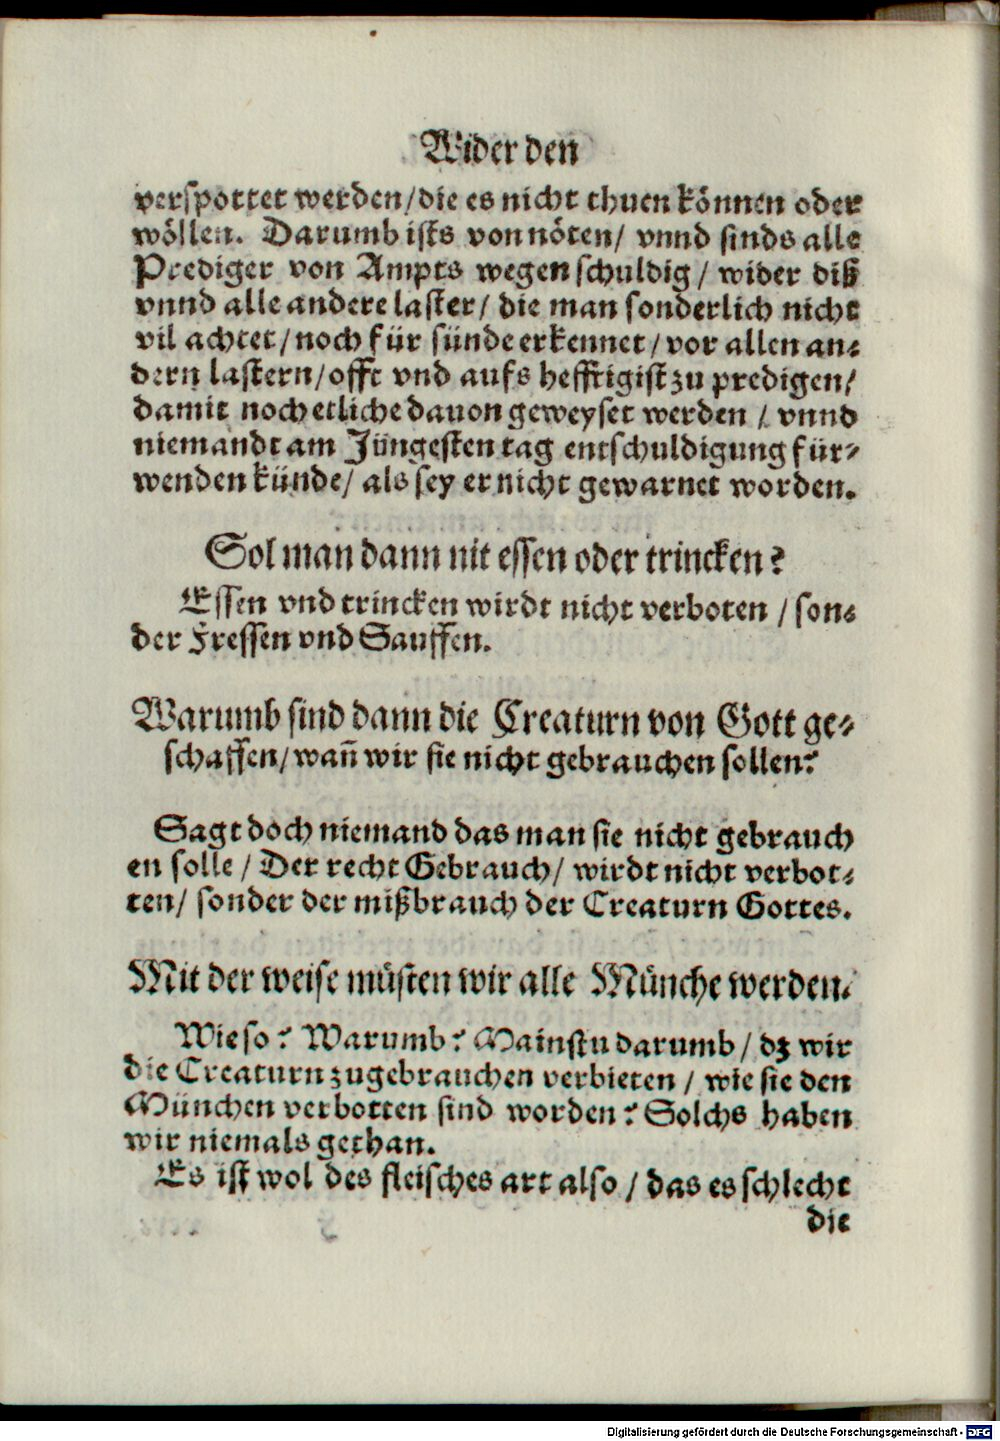 Wider den
verspottet werden/die es nicht thuen können oder
wöllen. Darumb ists von nöten/ vnnd sinds alle
Prediger von Ampts wegen schuldig / wider diß
vnnd alle andere laster/ die man sonderlich nicht
vil achtet/noch für sünde erkennet/vor allen an-
dern lastern/offt vnd aufs hefftigist zu predigen/
damit noch etliche dauon geweyset werden / vnnd
niemandt am Jüngesten tag entschuldigung für-
wenden künde/ als sey er nicht gewarnet worden.
Sol man dann nit essen oder trincken?
Essen vnd trincken wirdt nicht verboten / son-
der Fressen vnd Sauffen.
Warumb sind dann die Creaturn von Gott ge-
schaffen/wañ wir sie nicht gebrauchen sollen?
Sagt doch niemand das man sie nicht gebrauch
en solle / Der recht Gebrauch/ wirdt nicht verbot-
ten/ sonder der mißbrauch der Creaturn Gottes.
Mit der weise müsten wir alle Münche werden.
Wie so? Warumb? Mainstu darumb/ dz wir
die Creaturn zugebrauchen verbieten / wie sie den
München verbotten sind worden? Solchs haben
wir niemals gethan.
Es ist wol des fleisches art also / das es schlecht
die
Digitalisierung gefördert durch die Deutsche Forschungsgemeinschaft - DFG